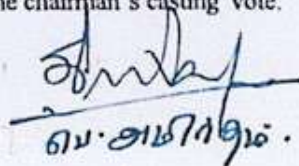 chairman's casting vote.
பெ. அமிர்தம்.